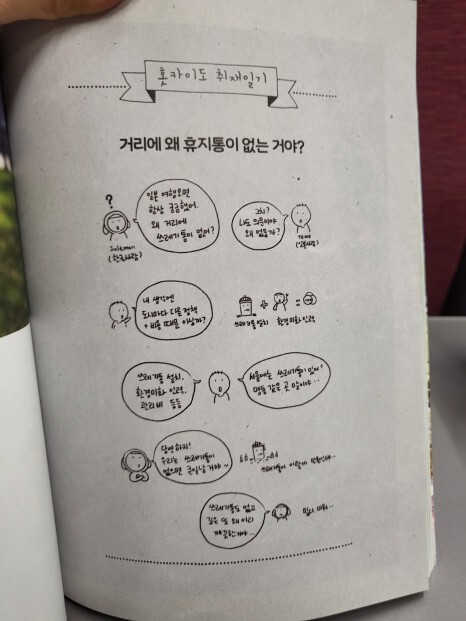 홋카이도 취재일기
거리에 왜 휴지통이 없는 거야?
?
일본 여행오면
항상 궁금했어.
왜 거리에
쓰레기통이 없어?
(한국사람)
그치?
나도 의문이야
왜 없을까?
(일본사람)
내 생각엔
도시마다 다른 정책
+ 비용 때문 아닐까?
쓰레기통 설치
환경미화 인력
쓰레기통 설치,
환경미화 인력,
관리비 등등
서울에는 쓰레기통이 있어?
명동 같은 곳 말이야…
당연하지!
우리는 쓰레기통이
없으면 큰일날 거야~
쓰레기통이 이렇게
쓰레기통도 없고
길은 또 왜 이리
깨끗한거야…